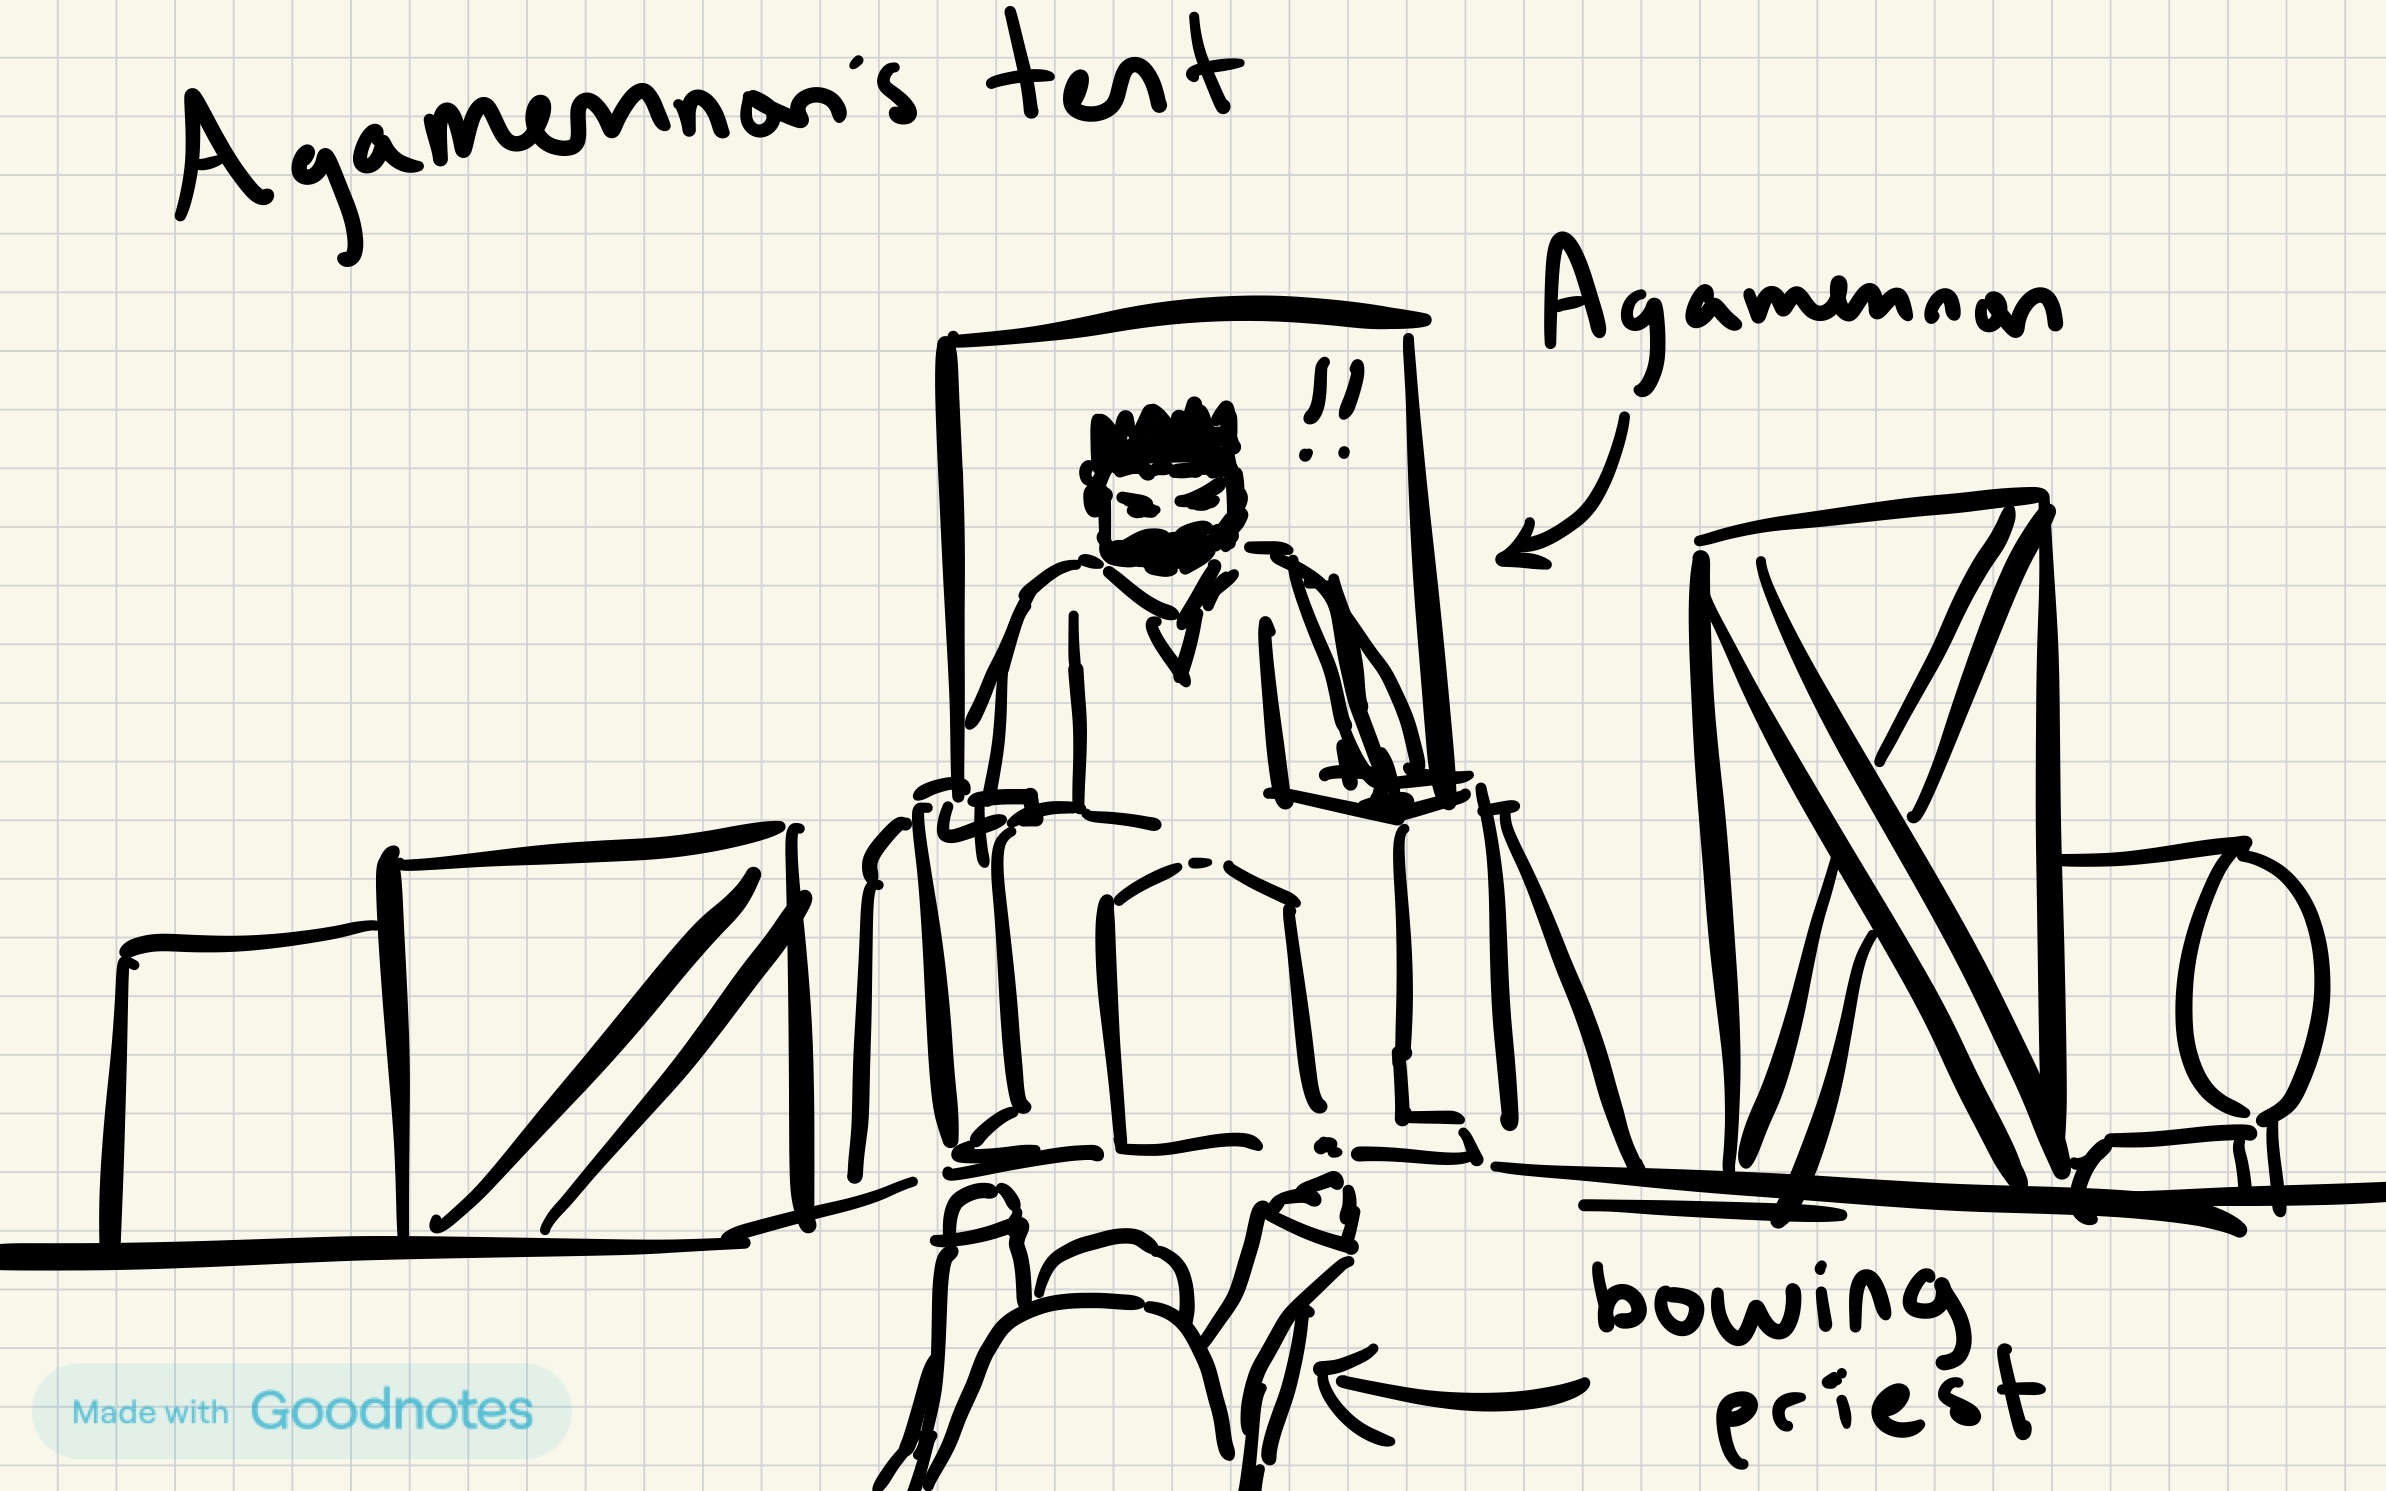 Agamemnon's tent
Agamemnon
!!
bowing
priest
Made with Goodnotes